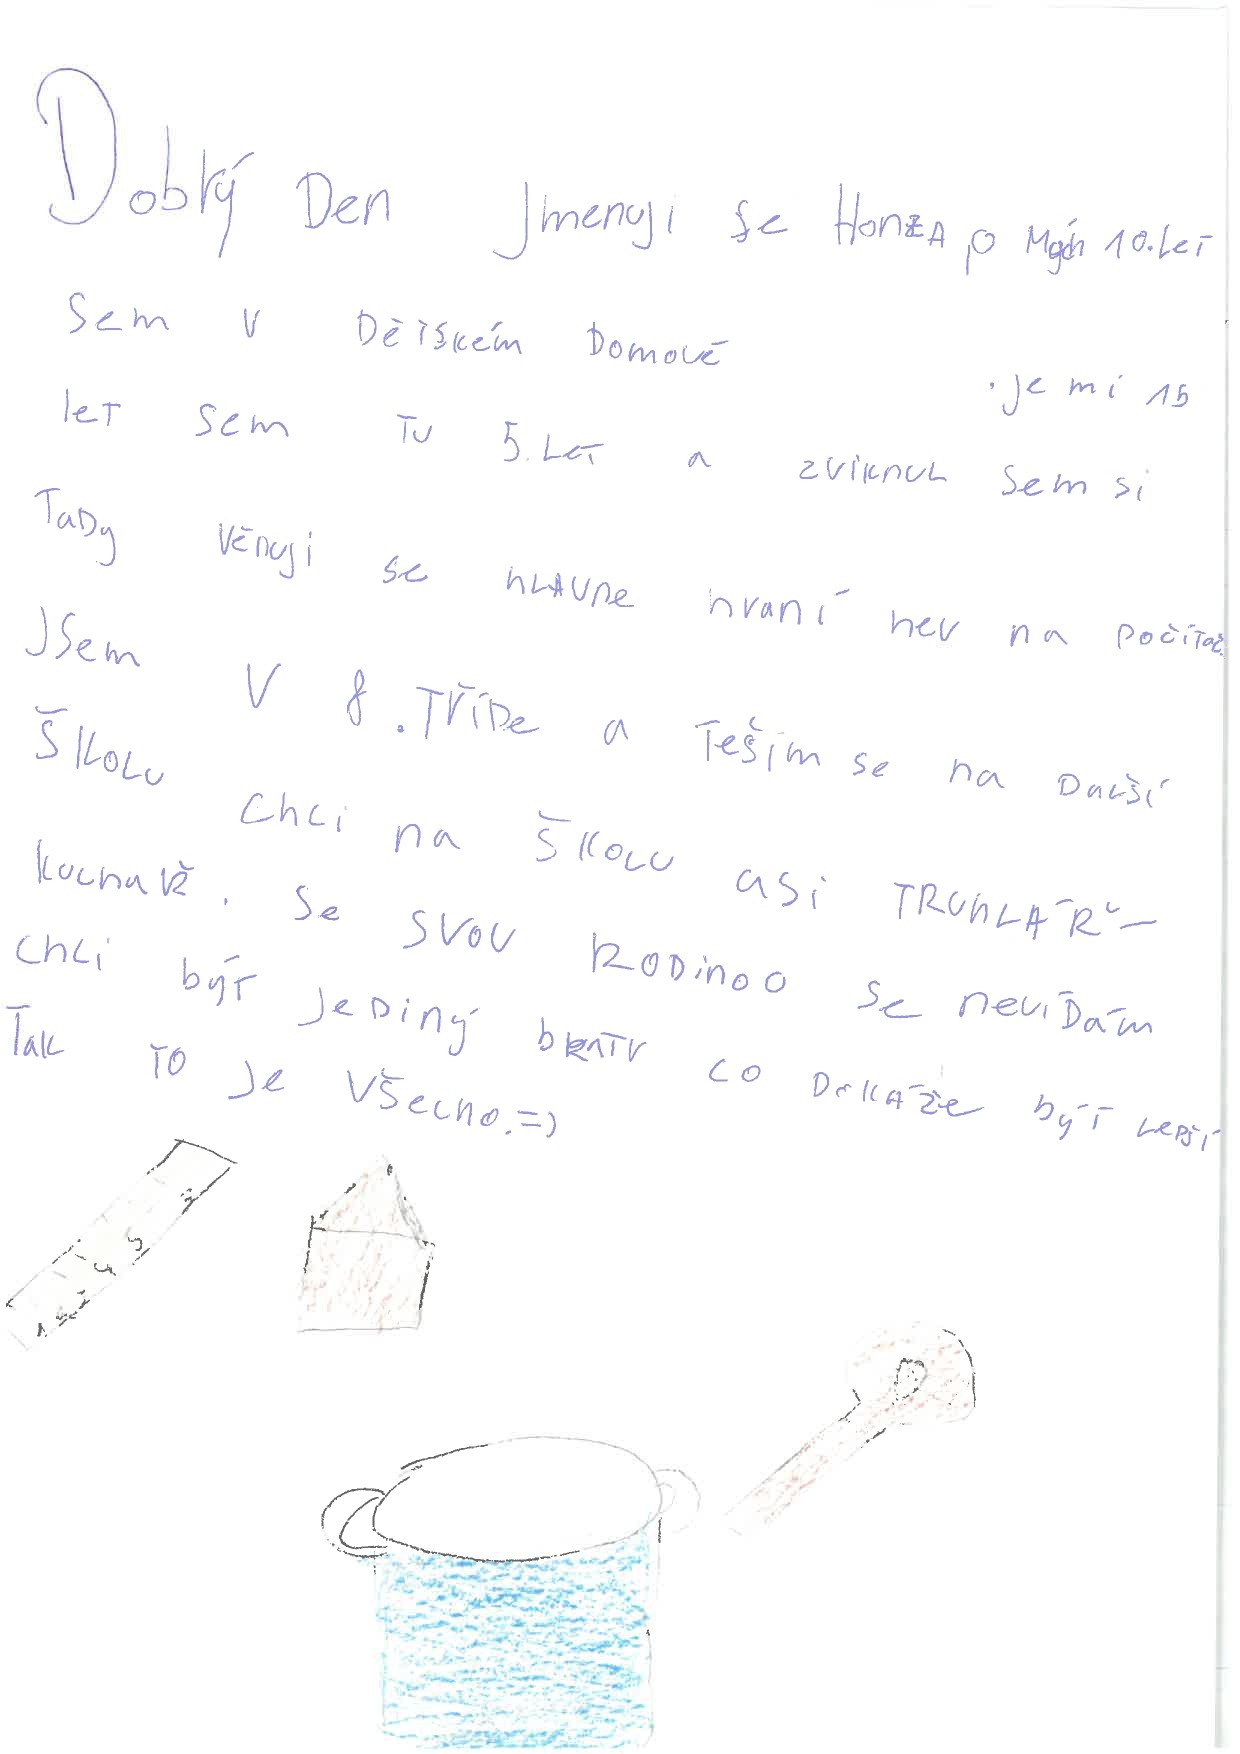 Dobrý Den Jmenuji se HonzA po Mých 10.let
Sem v Dětském Domově
.je mi 15
let sem tu 5.let a zviknul sem si
Tady věnuji se hlavne hraní her na počítač.
Jsem v 8.tříde a tešim se na Další
Školu chci na Školu asi TRUHLÁŘ-
kuchař. se svou Rodinoo se nevídám
chci být jediný bratr co dokáže být lepší
Tak to je všechno.=)
1 2 3 4 5 7